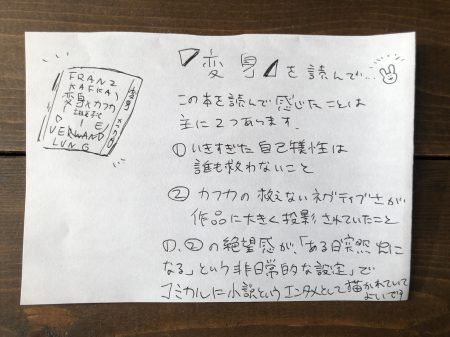 FRANZ
KAFKA
変身 カフカ
DIE
VERWAND
LUNG
『変身』を読んで…
この本を読んで感じたことは
主に2つあります.
①いきすぎた自己犠牲は
誰も救わないこと
② カフカの救えないネガティブさが
作品に大きく投影されていたこと
①、②の絶望感が、「ある日突然 虫に
なる」という非日常的な設定」で
コミカルに小説というエンタメとして描かれていて
よいです